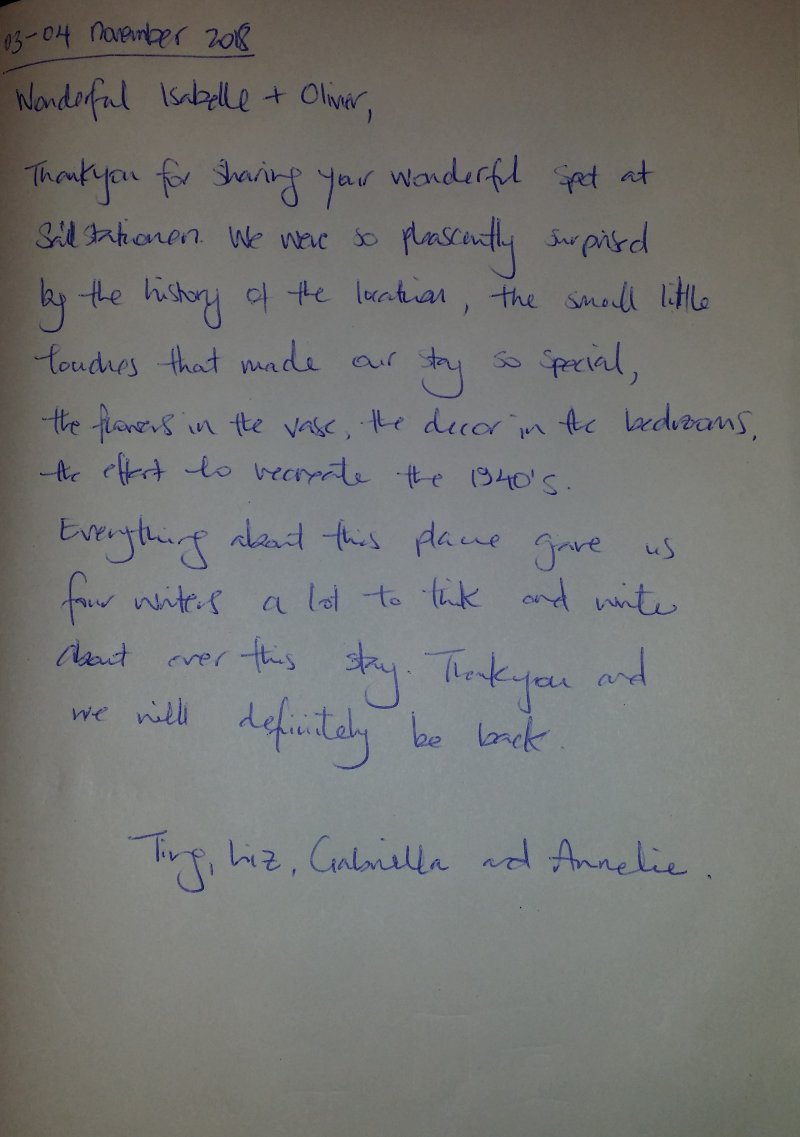 03-04 November 2018
Wonderful Isabelle + Olivier,
Thankyou for sharing your wonderful spot at
Sälstationen. We were so pleascently surprised
by the history of the location, the small little
touches that made our stay so special,
the flowers in the vase, the decor in the bedrooms,
the effort to recreate the 1940's.
Everything about this place gave us
four writers a lot to thik and write
about over this stay. Thankyou and
we will definitely be back.
Ting, Liz, Gabriella and Annelie.